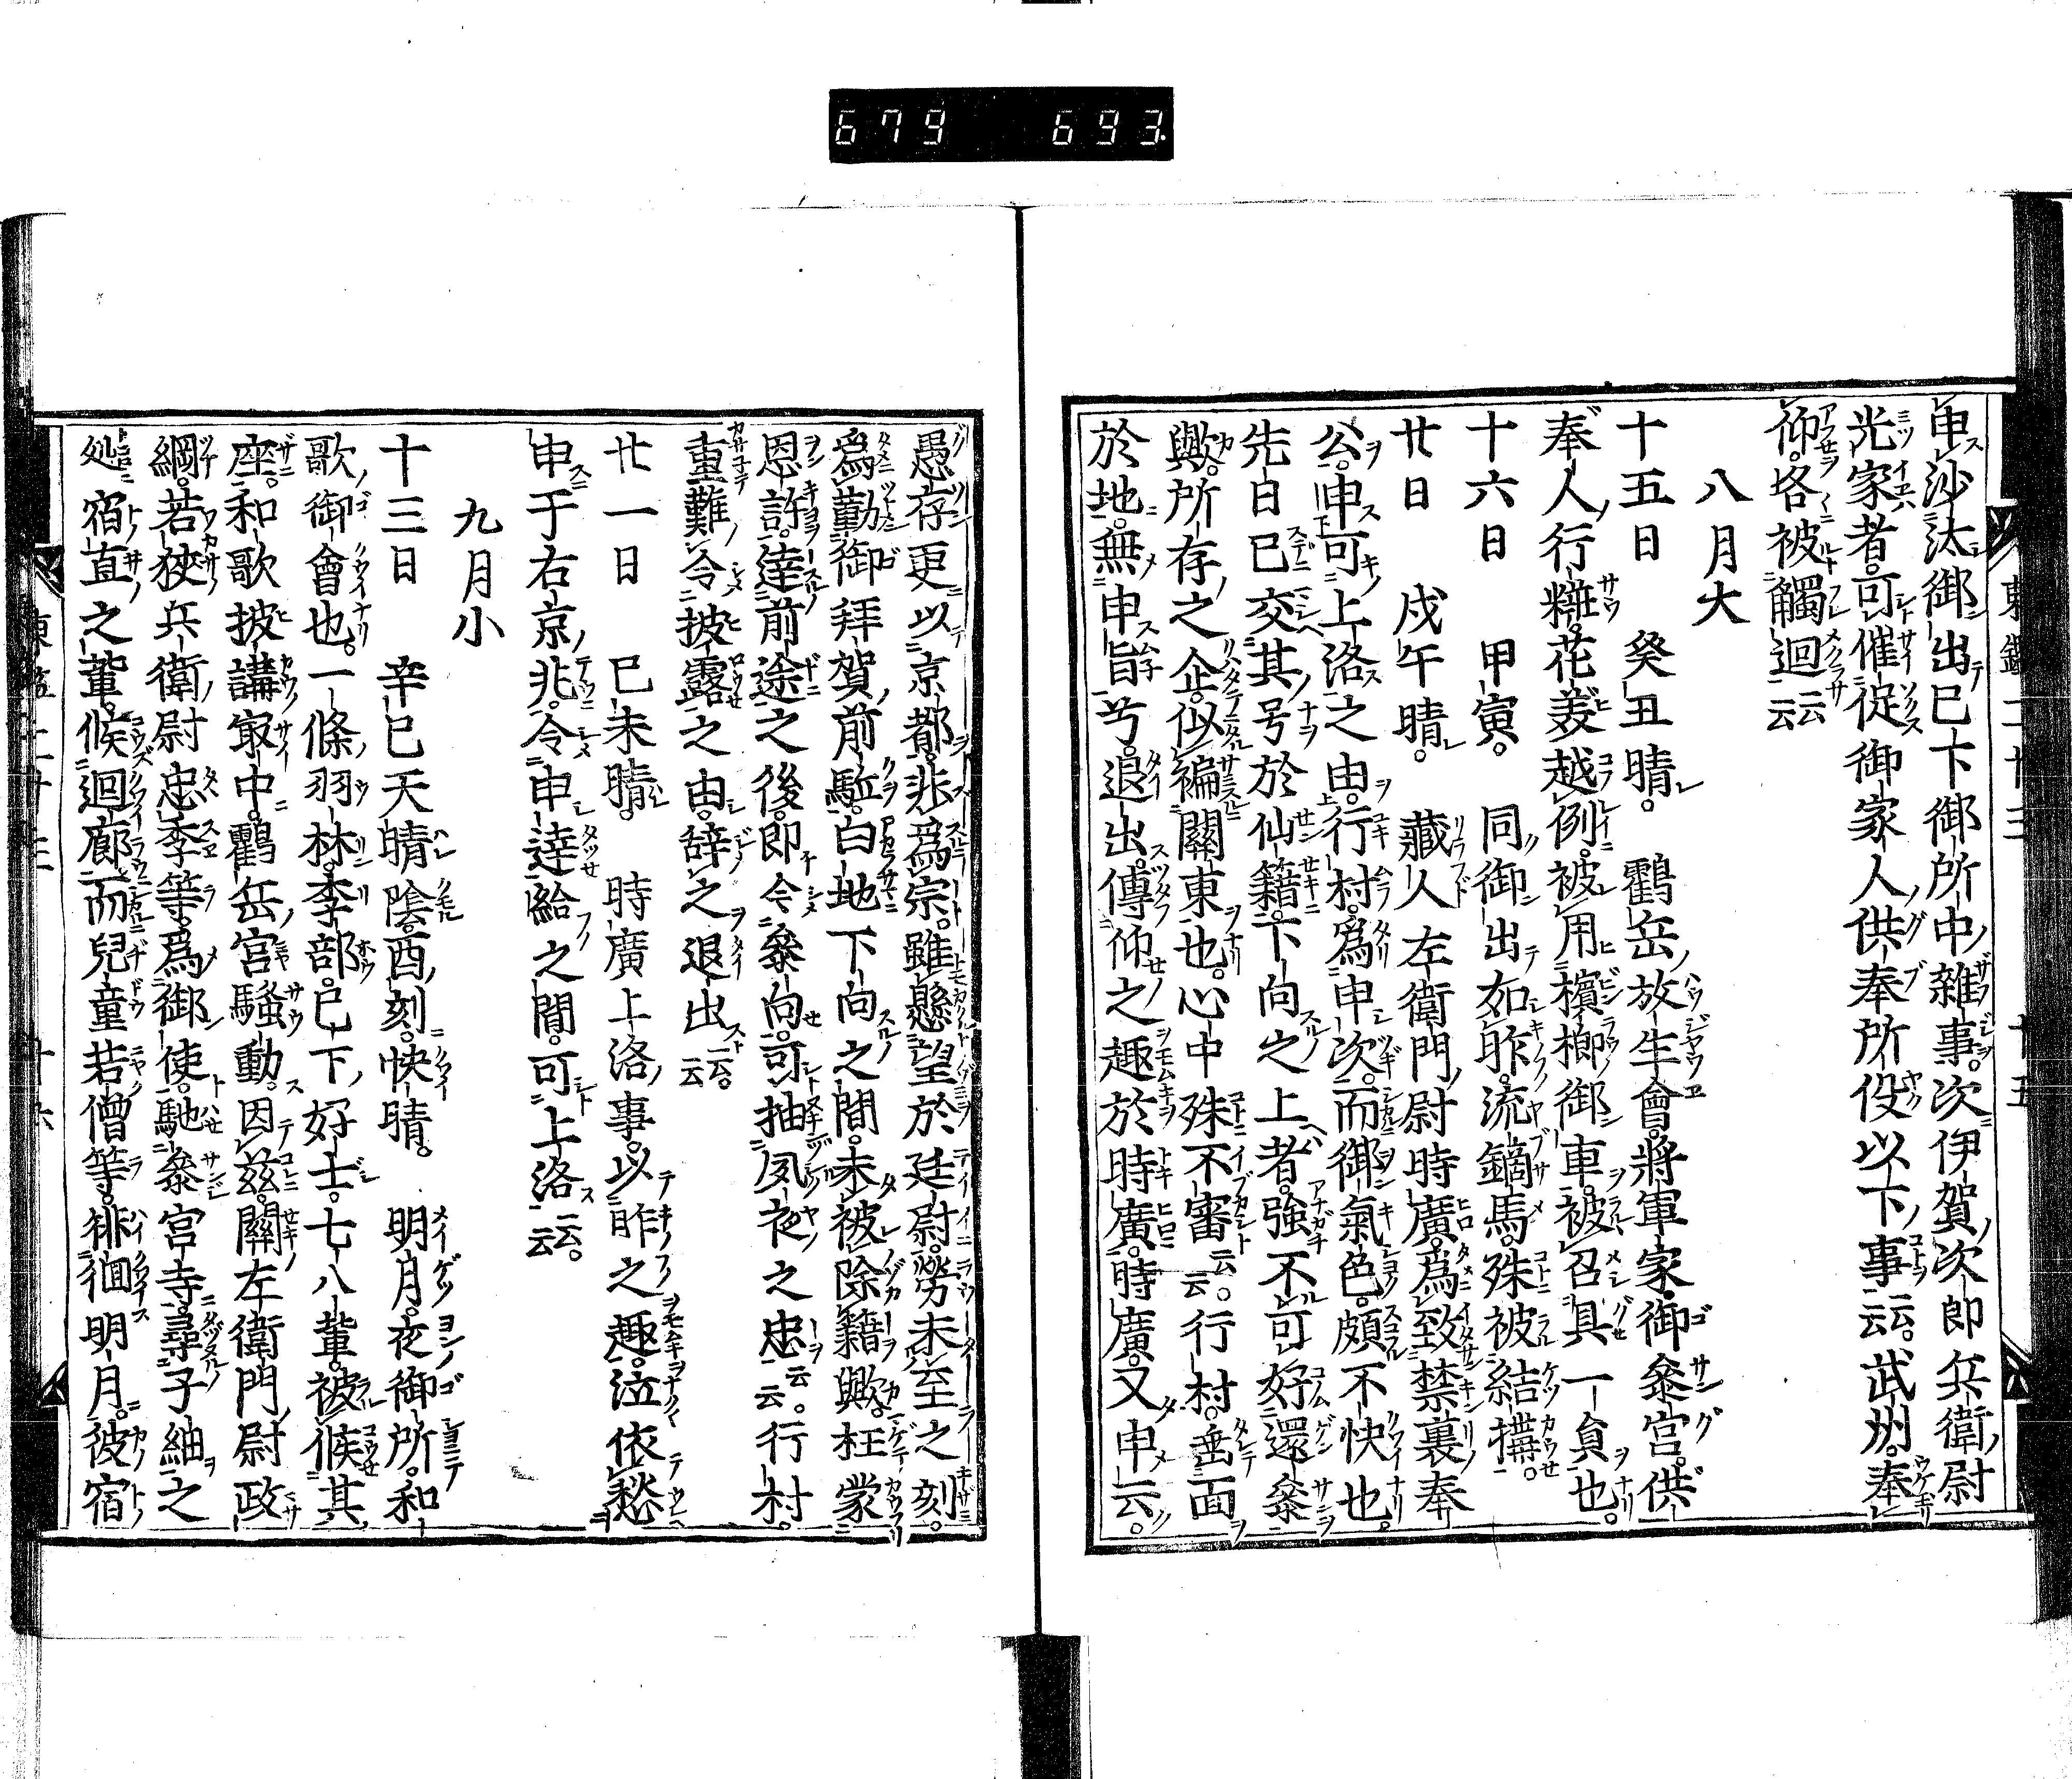 679 693
申沙汰御出已下御所中雜事次伊賀次郎兵衛尉
光家者可催促御家人供奉所役以下事云云武州奉
仰各被觸迴云云
八月大
十五日 癸丑晴 鸖岳放生會將軍家御參宮供
奉人行粧花羙越例被用檳榔御車被召具一負也
十六日 甲寅 同御出如昨流鏑馬殊被結搆
廿日 戊午晴 藏人左衛門尉時廣爲致禁裏奉
公申可上洛之由行村爲申次而御氣色頗不快也
先日已交其号於仙籍下向之上者強不可好還參
歟所存之企似褊關東也心中殊不審云云行村垂面
於地無申旨兮退出傳仰之趣於時廣時廣又申云
愚存更以京都非爲宗雖懸望於廷尉勞未至之刻
爲勤御拜賀前駈白地下向之間未被除籍歟枉蒙
恩許達前途之後即令參向可抽夙夜之忠云云行村
重難令披露之由辞之退出云云
廿一日 已未晴 時廣上洛事以昨之趣泣依愁
申于右京兆令申達給之間可上洛云云
九月小
十三日 辛巳天晴陰酉刻快晴 明月夜御所和
歌御會也一條羽林李部已下好士七八輩被候其
座和歌披講最中鸖岳宮騷動因茲關左衛門尉政
綱若狹兵衛尉忠季等爲御使馳參宮寺尋子細之
処宿直之輩候迴廊而兒童若僧等徘徊明月彼宿